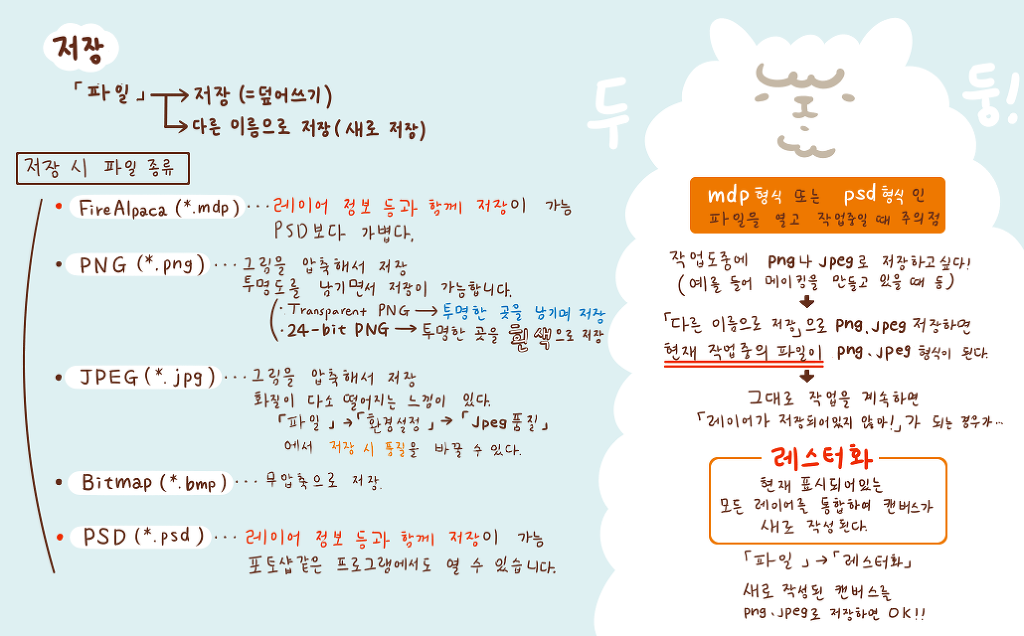 저장
「파일」→ 저장 (=덮어쓰기)
→ 다른 이름으로 저장(새로 저장)
저장 시 파일 종류
• FireAlpaca (*.mdp) ··· 레이어 정보 등과 함께 저장이 가능
PSD보다 가볍다.
• PNG (*.png) ··· 그림을 압축해서 저장
투명도를 남기면서 저장이 가능합니다.
· Transparent PNG → 투명한 곳을 남기며 저장
· 24-bit PNG → 투명한 곳을 흰색으로 저장
• JPEG (*.jpg) ··· 그림을 압축해서 저장
화질이 다소 떨어지는 느낌이 있다.
「파일」→「환경설정」→「Jpeg품질」
에서 저장 시 품질을 바꿀 수 있다.
• Bitmap (*.bmp) ··· 무압축으로 저장.
• PSD (*.psd) ··· 레이어 정보 등과 함께 저장이 가능
포토샵같은 프로그램에서도 열 수 있습니다.
두
둥!
mdp형식 또는 psd형식인
파일을 열고 작업중일 때 주의점
작업도중에 png나 Jpeg로 저장하고싶다!
(예를 들어 메이킹을 만들고 있을 때 등)
「다른 이름으로 저장」으로 png.Jpeg 저장하면
현재 작업중의 파일이 png.Jpeg 형식이 된다.
그대로 작업을 계속하면
「레이어가 저장되어있지 않아!」가 되는 경우가···
레스터화
현재 표시되어있는
모든 레이어를 통합하여 캔버스가
새로 작성된다.
「파일」→「레스터화」
새로 작성된 캔버스를
png.Jpeg로 저장하면 OK!!